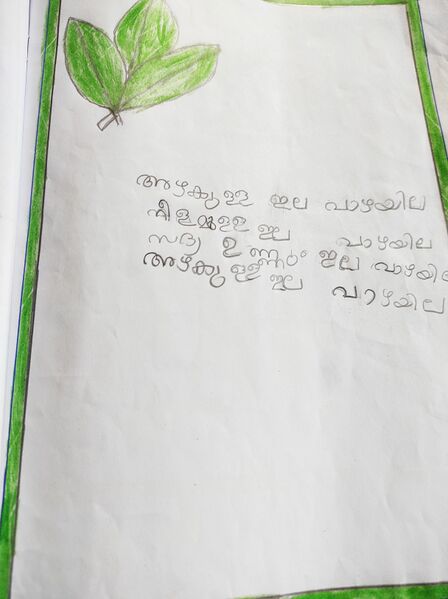 അഴക്കുള്ള ഇല വാഴയില
നീളമുള്ള ഇല വാഴയില
സദ്യ ഉണ്ണും ഇല വാഴയില
അഴക്കുള്ള ഇല വാഴയില